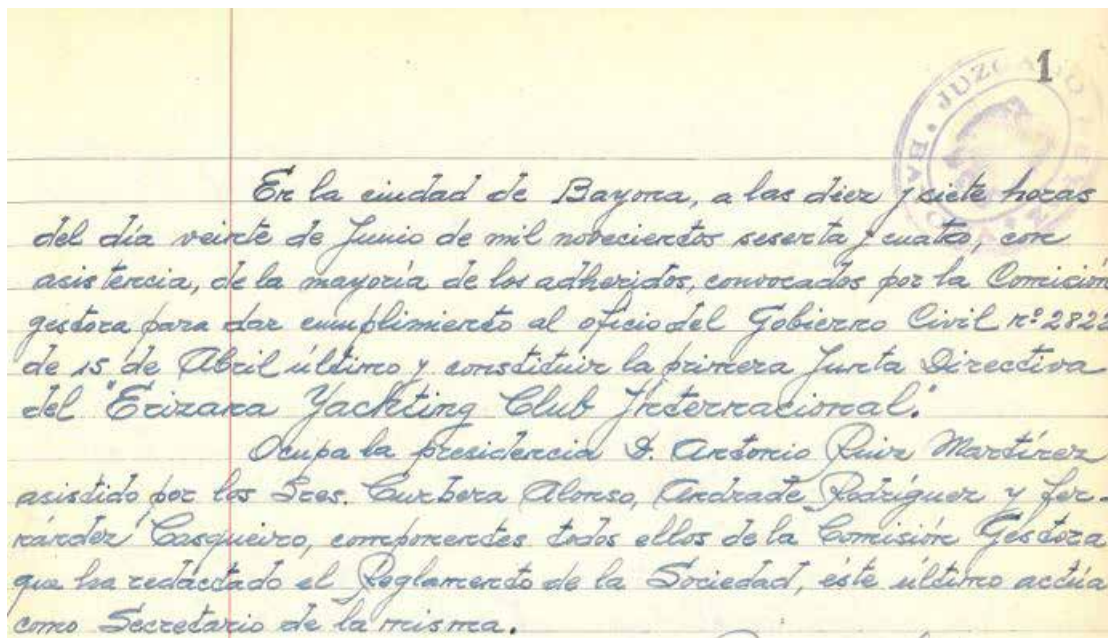 1
JUZGADO
En la ciudad de Bayona, a las diez y siete horas
del día veinte de Junio de mil novecientos sesenta y cuatro, con
asistencia, de la mayoría de los adheridos, convocados por la Comición
gestora para dar cumplimiento al oficio del Gobierno Civil nº 2822
de 15 de Abril último y constituir la primera Junta Directiva
del "Erizana Yachting Club Internacional."
Ocupa la presidencia D. Antonio Ruiz Martínez
asistido por los Sres. Curbera Alonso, Andrade Rodríguez y Fer-
nández Casqueiro, componentes todos ellos de la Comisión Gestora
que ha redactado el Reglamento de la Sociedad, éste último actúa
como Secretario de la misma.